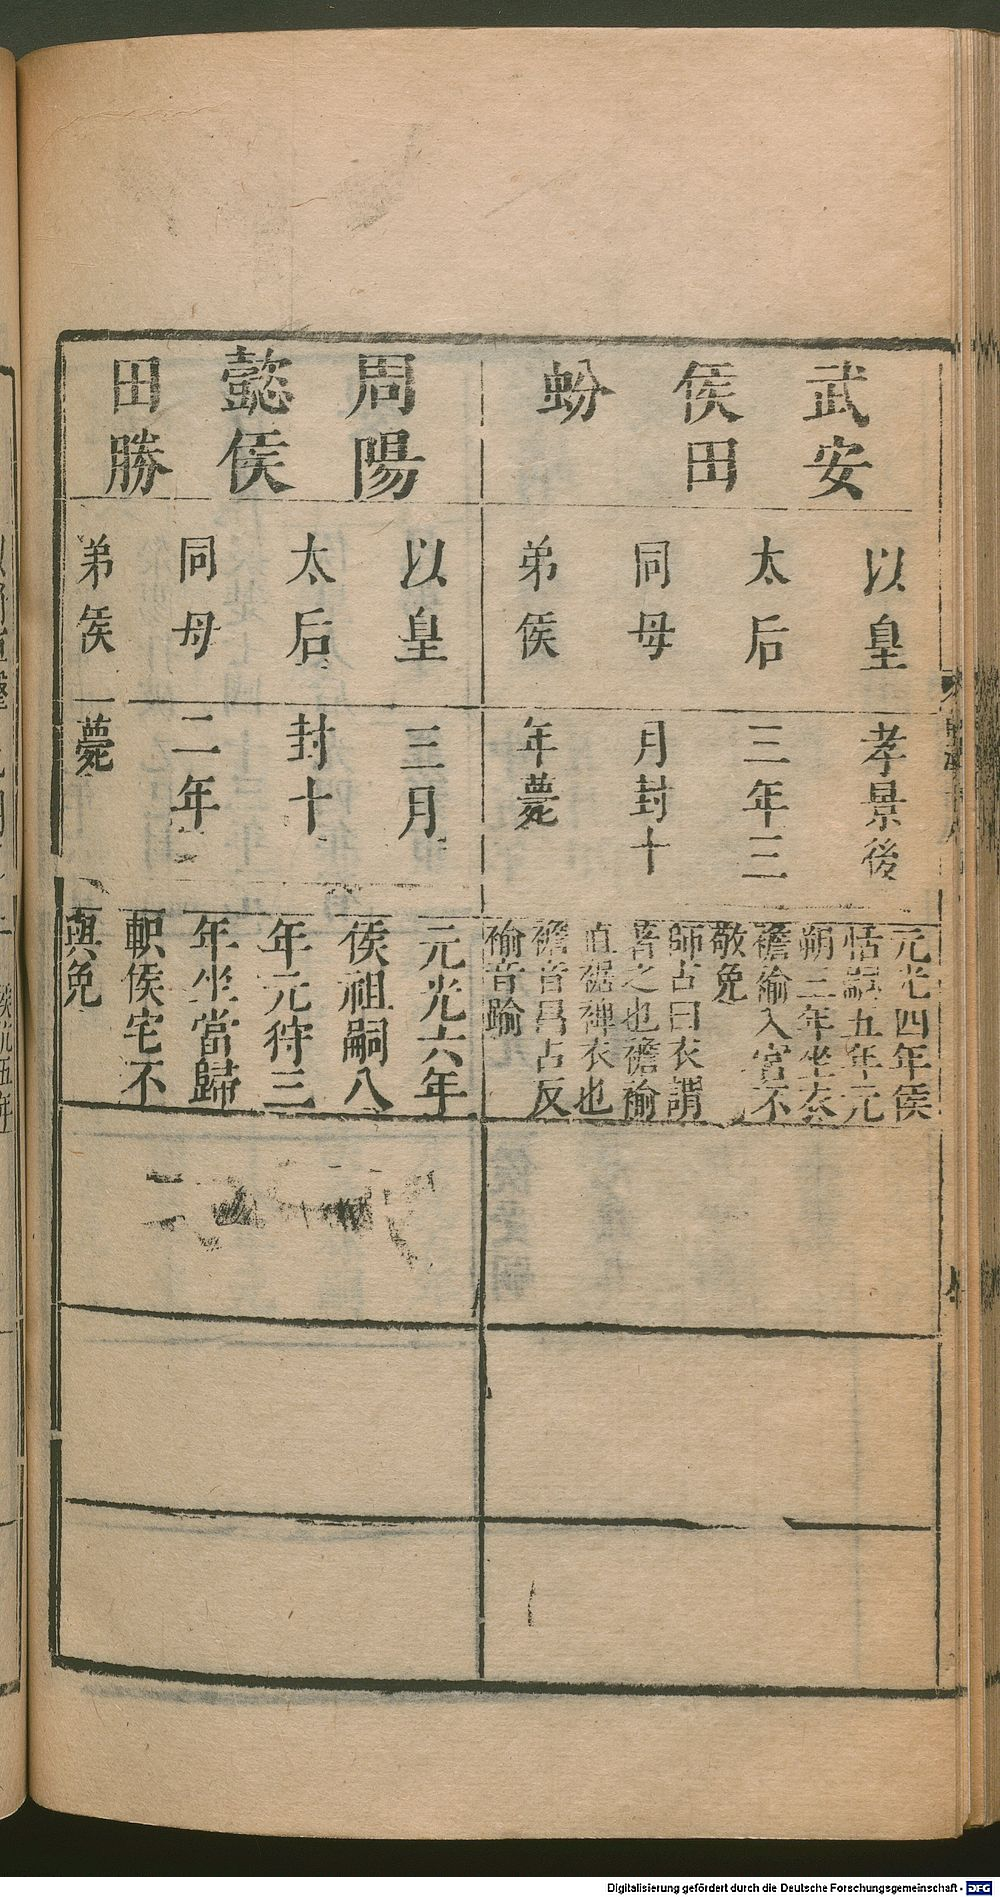 武安
侯田
蚡
以皇
太后
同母
弟侯
孝景後
三年三
月封十
年薨
元光四年侯
恬嗣五年元
朔三年坐衣
襜褕入宮不
敬免
師古曰衣謂
著之也襜褕
直裾禪衣也
襜音昌占反
褕音踰
周陽
懿侯
田勝
以皇
太后
同母
弟侯
三月
封十
二年
薨
元光六年
侯祖嗣八
年元狩三
年坐當歸
軹侯宅不
與免
Digitalisierung gefördert durch die Deutsche Forschungsgemeinschaft - DFG